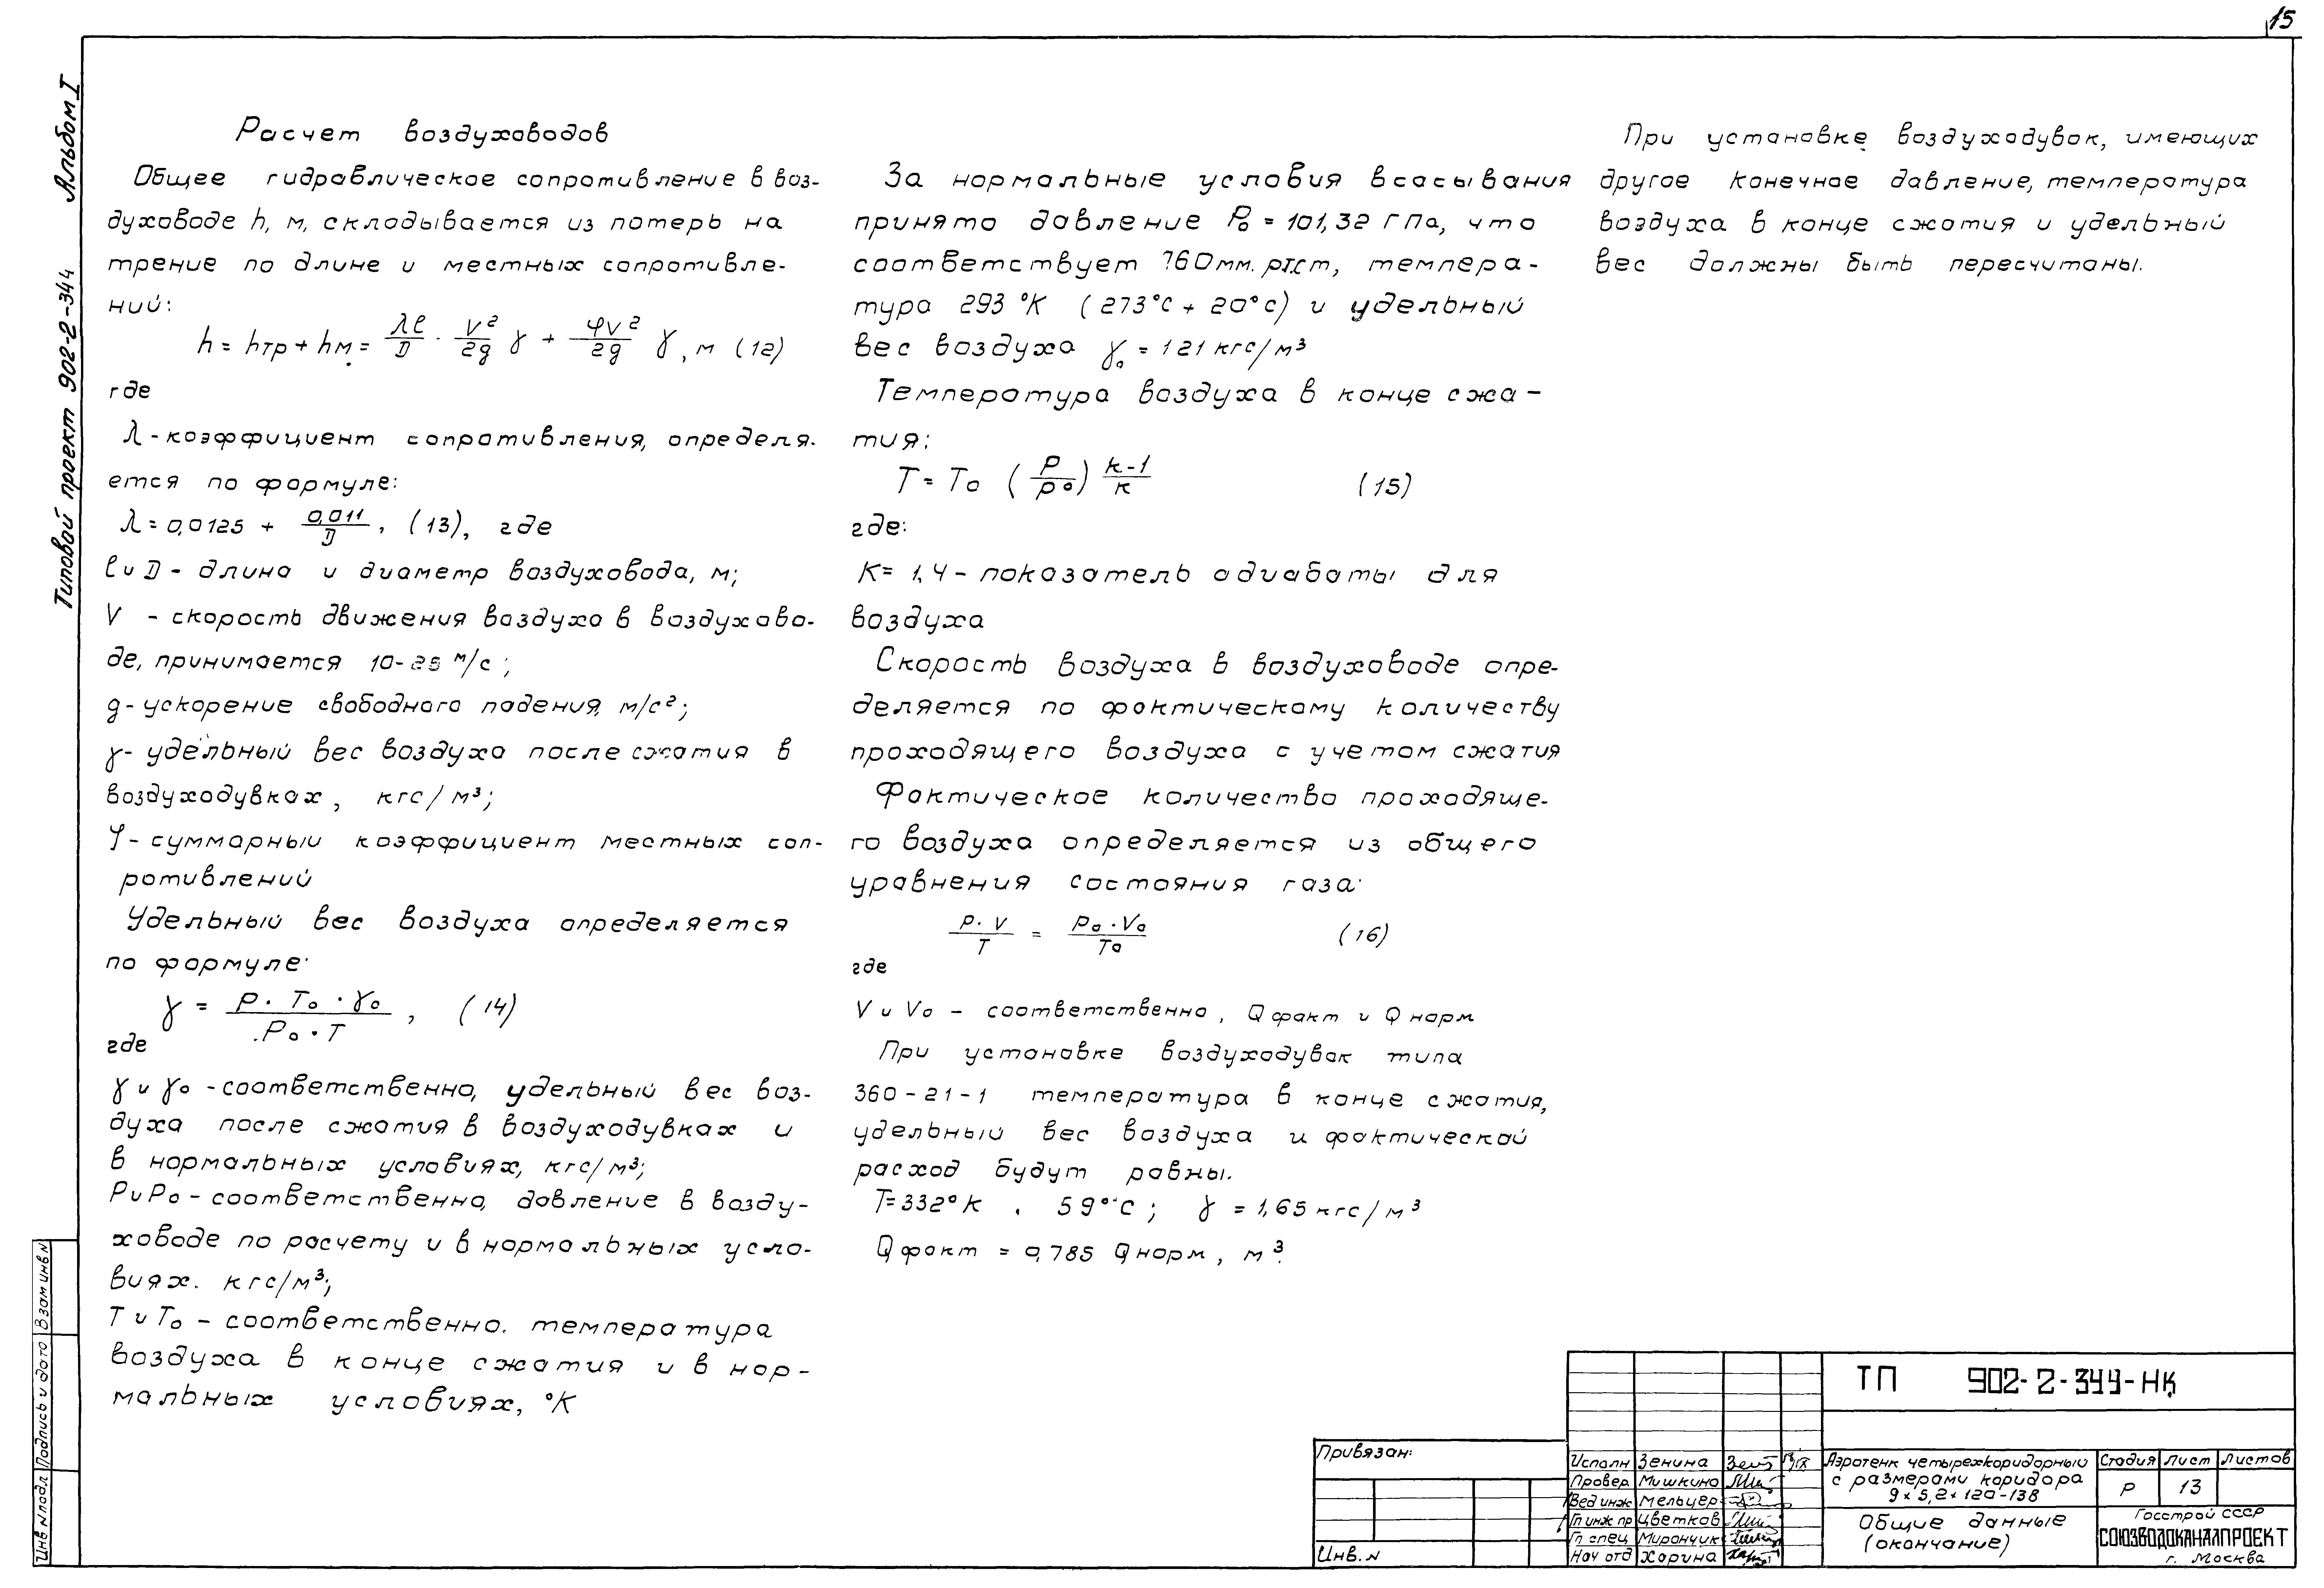 15
Альбом I
Типовой проект 902-2-344
Расчет воздуховодов
Общее гидравлическое сопротивление в воз-
духоводе h, м, складывается из потерь на
трение по длине и местных сопротивле-
ний:
h = hтр + hм = λℓ/D · V²/2g γ + φV²/2g γ, м (12)
где
λ - коэффициент сопротивления, определя-
ется по формуле:
λ = 0,0125 + 0,011/D, (13), где
ℓ и D - длина и диаметр воздуховода, м;
V - скорость движения воздуха в воздухово-
де, принимается 10-25 м/с;
g - ускорение свободного падения, м/с²;
γ - удельный вес воздуха после сжатия в
воздуходувках, кгс/м³;
φ - суммарный коэффициент местных соп-
ротивлений
Удельный вес воздуха определяется
по формуле:
γ = P · T₀ · γ₀ / P₀ · T, (14)
где
γ и γ₀ - соответственно, удельный вес воз-
духа после сжатия в воздуходувках и
в нормальных условиях, кгс/м³;
P и P₀ - соответственно, давление в возду-
ховоде по расчету и в нормальных усло-
виях. кгс/м³;
T и T₀ - соответственно. температура
воздуха в конце сжатия и в нор-
мальных условиях, °К
За нормальные условия всасывания
принято давление P₀ = 101,32 ГПа, что
соответствует 760 мм. рт.ст, темпера-
тура 293 °К (273°С + 20°С) и удельный
вес воздуха γ₀ = 121 кгс/м³
Температура воздуха в конце сжа-
тия:
T = T₀ (P/P₀) k-1/k (15)
где:
К = 1,4 - показатель адиабаты для
воздуха
Скорость воздуха в воздуховоде опре-
деляется по фактическому количеству
проходящего воздуха с учетом сжатия
Фактическое количество проходяще-
го воздуха определяется из общего
уравнения состояния газа:
P · V / T = P₀ · V₀ / T₀ (16)
где
V и V₀ - соответственно, Q факт и Q норм
При установке воздуходувок типа
360-21-1 температура в конце сжатия,
удельный вес воздуха и фактической
расход будут равны.
T = 332°К, 59°С; γ = 1,65 кгс/м³
Q факт = 0,785 Q норм, м³.
При установке воздуходувок, имеющих
другое конечное давление, температура
воздуха в конце сжатия и удельный
вес должны быть пересчитаны.
Взам инв N
Подпись и дата
Инв N подл
Привязан:
Инв. N
Исполн Зенина
Провер Мишкина
Вед инж Мельцер
Гл инж пр Цветков
Гл спец Мирончик
Нач отд Харина
ТП 902-2-344-НК
Аэротенк четырехкоридорный
с размерами коридора
9 × 5,2 × 120-138
Стадия Лист Листов
Р 13
Общие данные
(окончание)
Госстрой СССР
СОЮЗВОДОКАНАЛПРОЕКТ
г. Москва